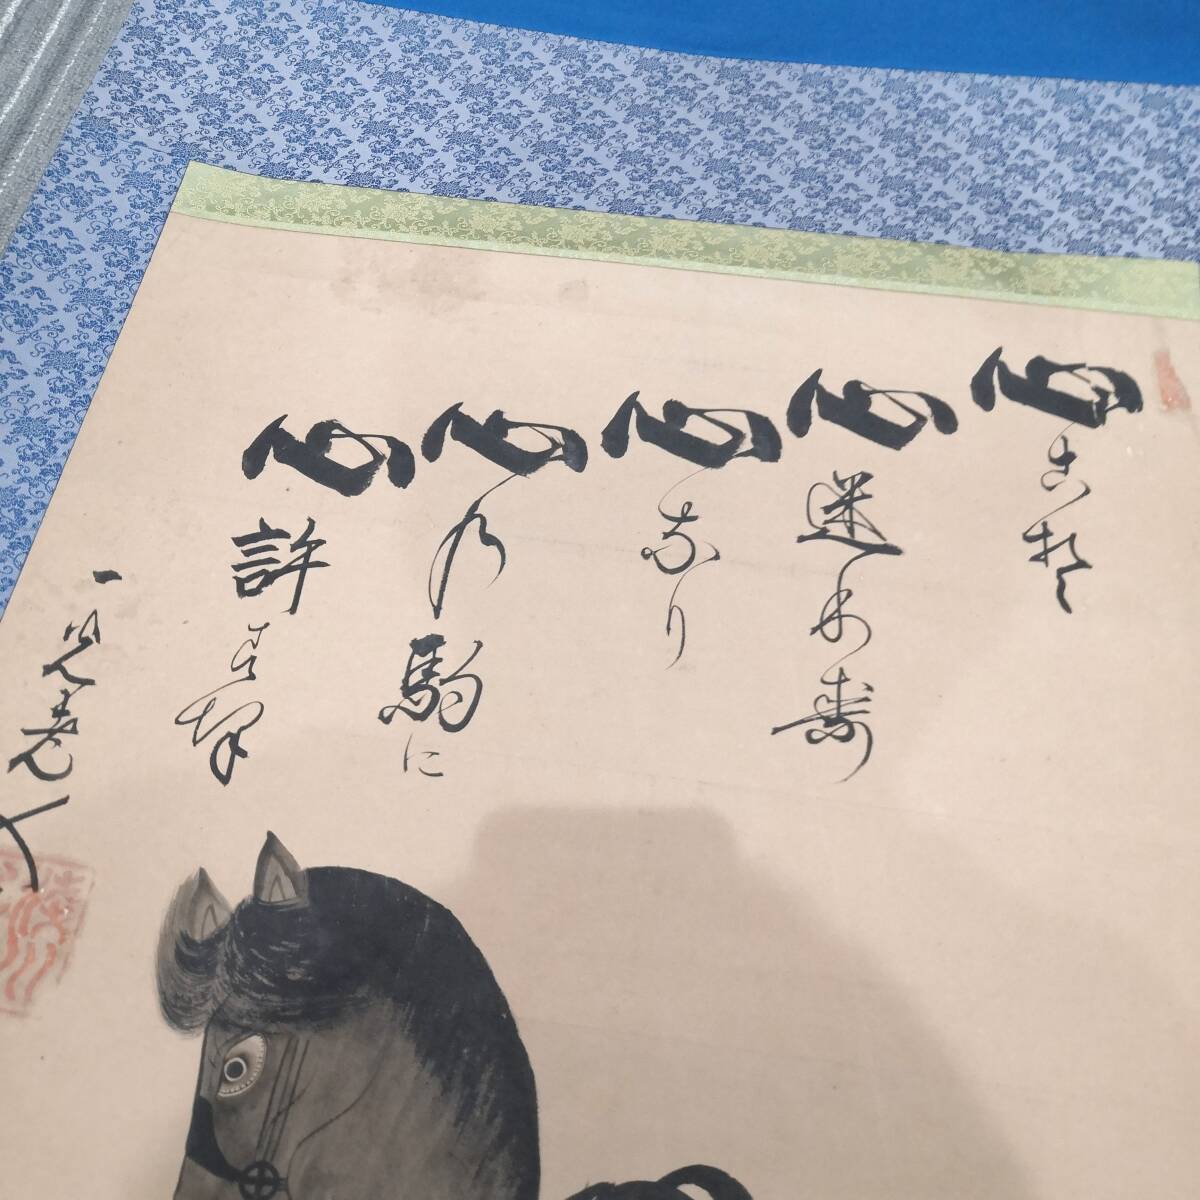 心こそ
心迷わす
心なり
心乃駒に
心許すな
老人